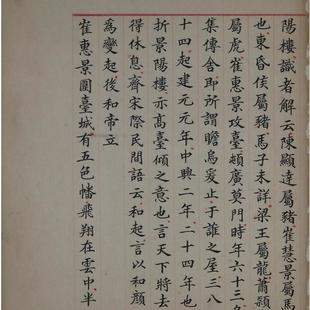 陽樓識者解云陳顯達屬豬崔慧景屬馬
也東昏侯屬豬馬子未詳梁王屬龍蕭穎
屬虎崔惠景攻臺頓廣莫門時年六十三烏
集傳舍即所謂瞻烏爰止于誰之屋三八
十四起建元元年中興二年二十四年也
折景陽樓亦高臺傾之意也言天下將去
得休息齊宋際民間語云和起言以和顏
為變起後和帝立
崔惠景圍臺城有五色幡飛翔在雲中半